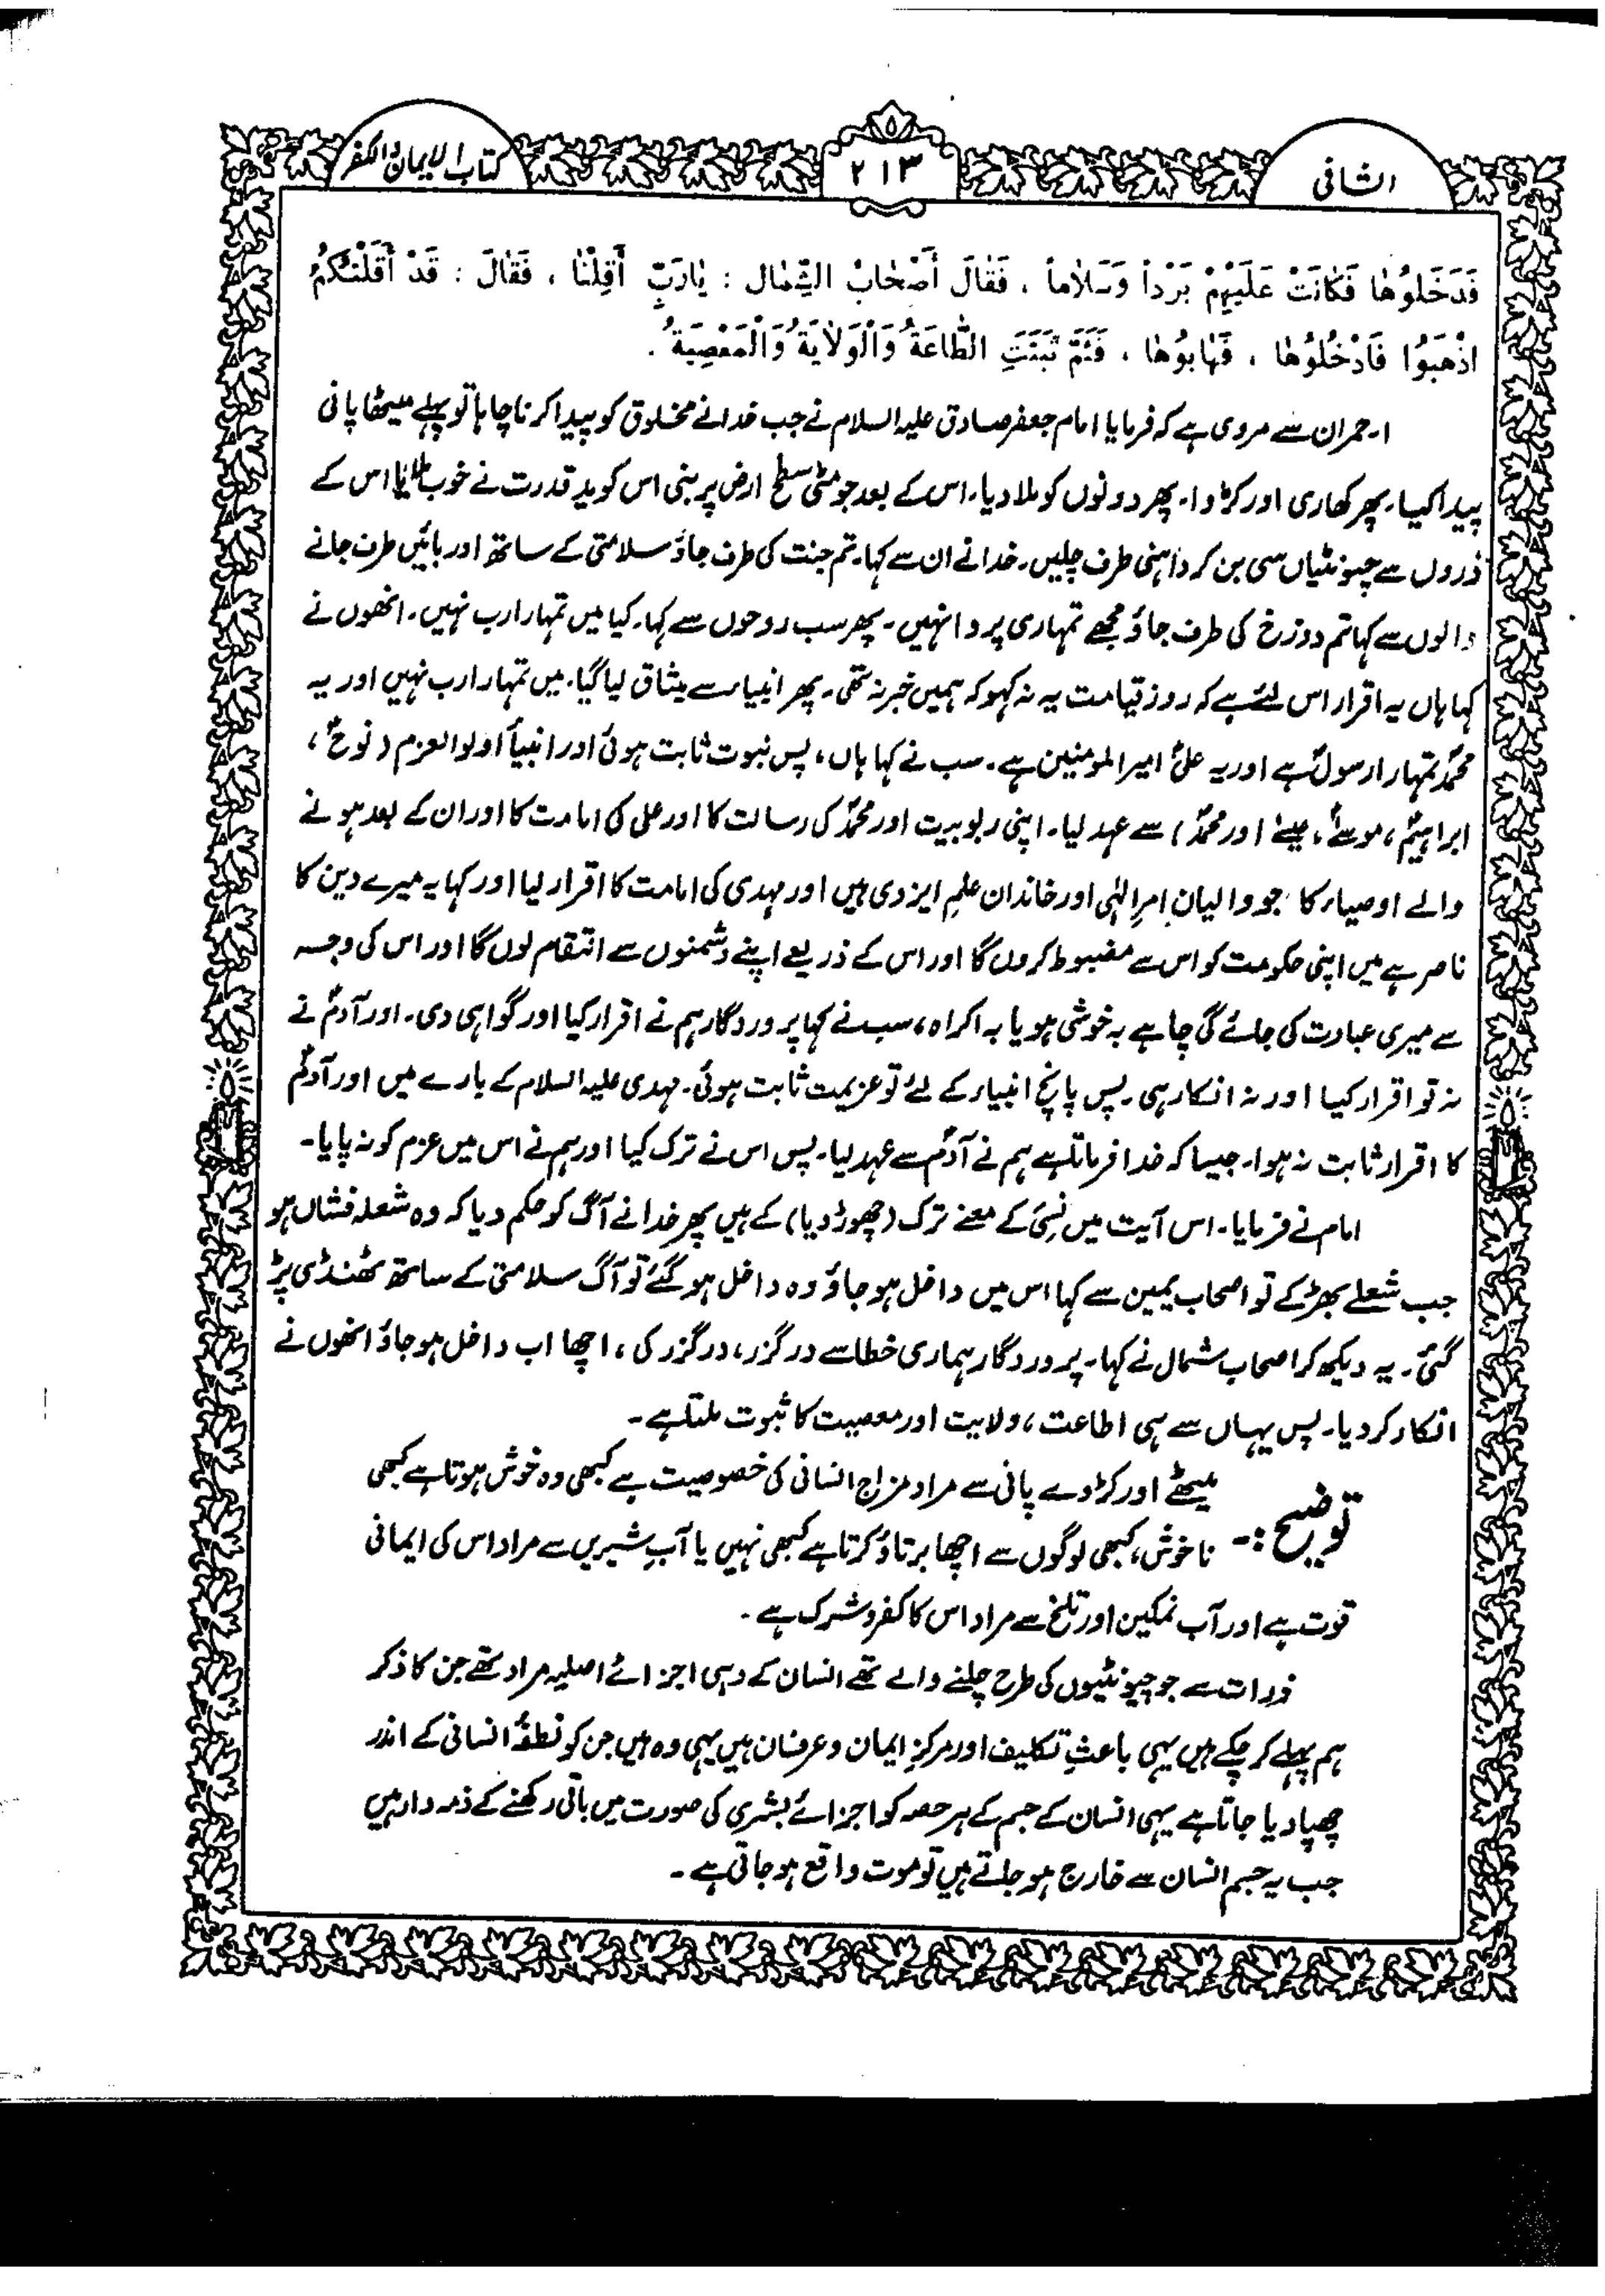 الشافی
۲۱۳
کتاب الایمان والکفر
فَدَخَلُوهٰا فَكٰانَتْ عَلَيْهِمْ بَرْداً وَسَلاٰماً ، فَقٰالَ أَصْحٰابُ الشِّمٰالِ : يٰارَبِّ أَقِلْنٰا ، فَقٰالَ : قَدْ أَقَلْتُكُمُ
اذْهَبُوا فَادْخُلُوهٰا ، فَهٰابُوهٰا ، فَثَمَّ ثَبَتَتِ الطّٰاعَةُ وَالْوَلاٰيَةُ وَالْمَعْصِيَةُ .
ا۔ حمران سے مروی ہے کہ فرمایا امام جعفر صادق علیہ السلام نے جب خدا نے مخلوق کو پیدا کرنا چاہا تو پہلے میٹھا پانی
پیدا کیا۔ پھر کھاری اور کڑوا۔ پھر دونوں کو ملا دیا۔ اس کے بعد جو مٹی سطح ارض پر بنی اس کو ید قدرت نے خوب ملایا اس کے
ذروں سے چیونٹیاں سی بن کر داہنی طرف چلیں۔ خدا نے ان سے کہا۔ تم جنت کی طرف جاؤ سلامتی کے ساتھ اور بائیں طرف جانے
والوں سے کہا تم دوزخ کی طرف جاؤ مجھے تمہاری پروا نہیں۔ پھر سب روحوں سے کہا۔ کیا میں تمہارا رب نہیں۔ انھوں نے
کہا ہاں یہ اقرار اس لئے ہے کہ روز قیامت یہ نہ کہو کہ ہمیں خبر نہ تھی۔ پھر انبیاء سے میثاق لیا گیا۔ میں تمہارا رب نہیں اور یہ
محمدؐ تمہارا رسول ہے اور یہ علیؑ امیر المومنین ہے۔ سب نے کہا ہاں، پس نبوت ثابت ہوئی اور انبیأ اولوالعزم (نوحؑ،
ابراہیمؑ، موسےٰؑ، عیسےٰ اور محمدؐ) سے عہد لیا۔ اپنی ربوبیت اور محمدؐ کی رسالت کا اور علی کی امامت کا اور ان کے بعد ہونے
والے اوصیاء کا جو والیانِ امرِ الٰہی اور خاندان علمِ ایزدی ہیں اور مہدی کی امامت کا اقرار لیا اور کہا یہ میرے دین کا
ناصر ہے میں اپنی حکومت کو اس سے مضبوط کروں گا اور اس کے ذریعے اپنے دشمنوں سے انتقام لوں گا اور اس کی وجہ
سے میری عبادت کی جائے گی چاہے بہ خوشی ہو یا بہ اکراہ، سب نے کہا پروردگار ہم نے اقرار کیا اور گواہی دی۔ اور آدمؑ نے
نہ تو اقرار کیا اور نہ انکار ہی۔ پس پانچ انبیاء کے لئے تو عزیمت ثابت ہوئی۔ مہدی علیہ السلام کے بارے میں اور آدمؑ
کا اقرار ثابت نہ ہوا۔ جیسا کہ خدا فرماتا ہے ہم نے آدمؑ سے عہد لیا۔ پس اس نے ترک کیا اور ہم نے اس میں عزم کو نہ پایا۔
امام نے فرمایا۔ اس آیت میں نسی کے معنے ترک (چھوڑ دیا) کے ہیں پھر خدا نے آگ کو حکم دیا کہ وہ شعلہ فشاں ہو
جب شعلے بھڑکے تو اصحاب یمین سے کہا اس میں داخل ہو جاؤ وہ داخل ہو گئے تو آگ سلامتی کے ساتھ ٹھنڈی پڑ
گئی۔ یہ دیکھ کر اصحاب شمال نے کہا۔ پروردگار ہماری خطا سے درگزر، درگزر کی، اچھا اب داخل ہو جاؤ انھوں نے
انکار کر دیا۔ پس یہاں سے ہی اطاعت، ولایت اور معصیت کا ثبوت ملتا ہے۔
توضیح :۔ میٹھے اور کڑوے پانی سے مراد مزاج انسانی کی خصوصیت ہے کبھی وہ خوش ہوتا ہے کبھی
ناخوش، کبھی لوگوں سے اچھا برتاؤ کرتا ہے کبھی نہیں یا آبِ شیریں سے مراد اس کی ایمانی
قوت ہے اور آب نمکین اور تلخ سے مراد اس کا کفر و شرک ہے۔
ذرات سے جو چیونٹیوں کی طرح چلنے والے تھے انسان کے وہی اجزائے اصلیہ مراد تھے جن کا ذکر
ہم پہلے کر چکے ہیں یہی باعثِ تکلیف اور مرکزِ ایمان و عرفان ہیں یہی وہ ہیں جن کو نطفۂ انسانی کے اندر
چھپا دیا جاتا ہے یہی انسان کے جسم کے ہر حصہ کو اجزائے بشری کی صورت میں باقی رکھنے کے ذمہ دار ہیں
جب یہ جسم انسان سے خارج ہو جاتے ہیں تو موت واقع ہو جاتی ہے۔